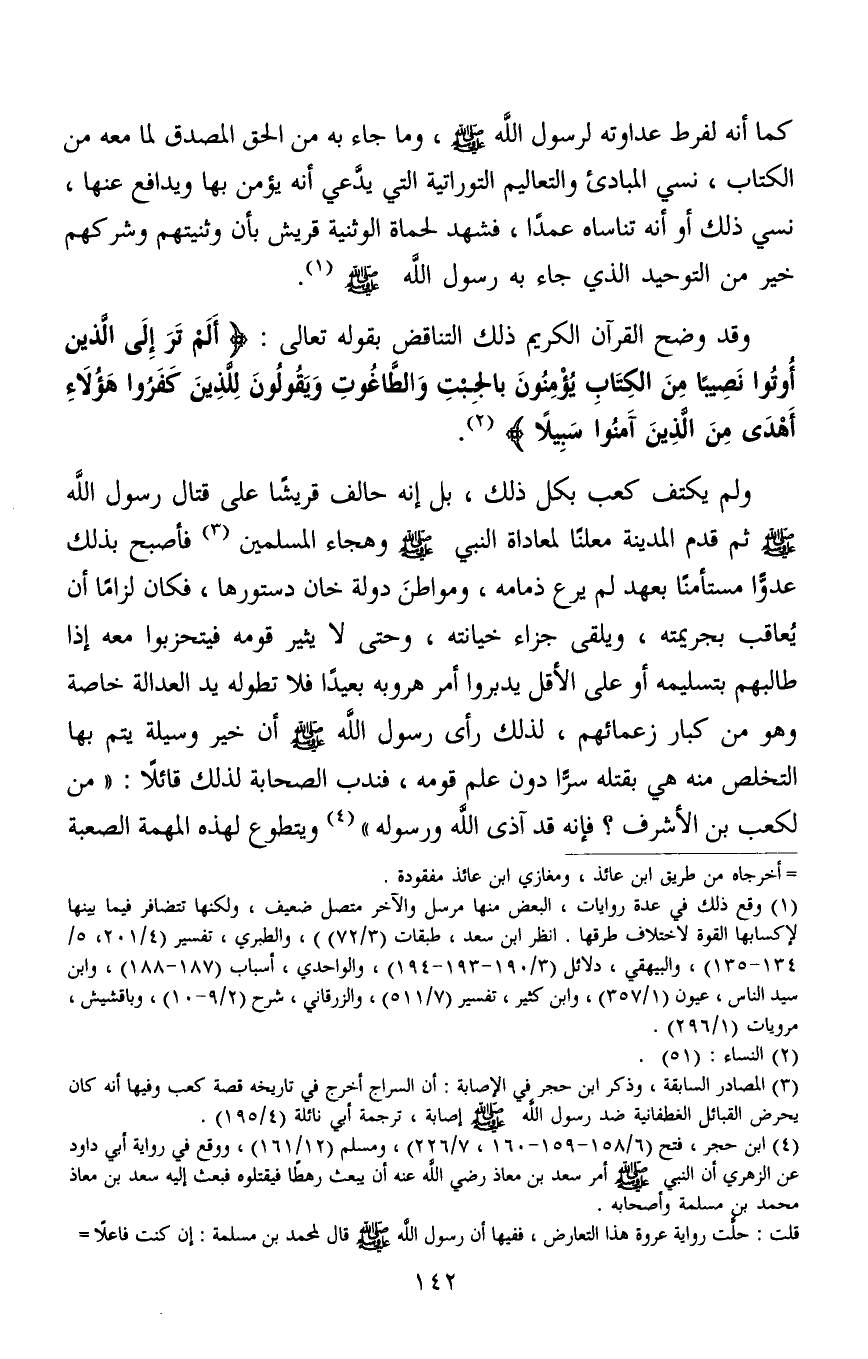 كما أنه لفرط عداوته لرسول اللَّه ﷺ ، وما جاء به من الحق المصدق لما معه من
الكتاب ، نسي المبادئ والتعاليم التوراتية التي يدَّعي أنه يؤمن بها ويدافع عنها ،
نسي ذلك أو أنه تناساه عمدًا ، فشهد لحماة الوثنية قريش بأن وثنيتهم وشركهم
خير من التوحيد الذي جاء به رسول اللَّه ﷺ (١).
وقد وضح القرآن الكريم ذلك التناقض بقوله تعالى : ﴿ أَلَمْ تَرَ إِلَى الَّذين
أُوتُوا نَصِيبًا مِنَ الكِتَابِ يُؤْمِنُونَ بالجِبْتِ وَالطَّاغُوتِ وَيَقُولُونَ لِلَّذِينَ كَفَرُوا هَؤُلَاءِ
أَهْدَى مِنَ الَّذِينَ آمَنُوا سَبِيلًا ﴾ (٢).
ولم يكتف كعب بكل ذلك ، بل إنه حالف قريشًا على قتال رسول اللَّه
ﷺ ثم قدم المدينة معلنًا لمعاداة النبي ﷺ وهجاء المسلمين (٣) فأصبح بذلك
عدوًّا مستأمنًا بعهد لم يرع ذمامه ، ومواطنَ دولة خان دستورها ، فكان لزامًا أن
يُعاقب بجريمته ، ويلقى جزاء خيانته ، وحتى لا يثير قومه فيتحزبوا معه إذا
طالبهم بتسليمه أو على الأقل يدبروا أمر هروبه بعيدًا فلا تطوله يد العدالة خاصة
وهو من كبار زعمائهم ، لذلك رأى رسول اللَّه ﷺ أن خير وسيلة يتم بها
التخلص منه هي بقتله سرًّا دون علم قومه ، فندب الصحابة لذلك قائلًا : « من
لكعب بن الأشرف ؟ فإنه قد آذى اللَّه ورسوله » (٤) ويتطوع لهذه المهمة الصعبة
= أخرجاه من طريق ابن عائذ ، ومغازي ابن عائذ مفقودة .
(١) وقع ذلك في عدة روايات ، البعض منها مرسل والآخر متصل ضعيف ، ولكنها تتضافر فيما بينها
لإكسابها القوة لاختلاف طرقها . انظر ابن سعد ، طبقات (٧٢/٣) ) ، والطبري ، تفسير (٢٠١/٤، ٥/
١٣٤-١٣٥) ، والبيهقي ، دلائل (١٩٠/٣-١٩٣-١٩٤) ، والواحدي ، أسباب (١٨٧-١٨٨) ، وابن
سيد الناس ، عيون (٣٥٧/١) ، وابن كثير ، تفسير (٥١١/٧) ، والزرقاني ، شرح (٩/٢-١٠) ، وباقشيش ،
مرويات (٢٩٦/١) .
(٢) النساء : (٥١) .
(٣) المصادر السابقة ، وذكر ابن حجر في الإصابة : أن السراج أخرج في تاريخه قصة كعب وفيها أنه كان
يحرض القبائل الغطفانية ضد رسول اللَّه ﷺ إصابة ، ترجمة أبي نائلة (١٩٥/٤) .
(٤) ابن حجر ، فتح (١٥٨/٦-١٥٩-١٦٠ ، ٢٢٦/٧) ، ومسلم (١٦١/١٢) ، ووقع في رواية أبي داود
عن الزهري أن النبي ﷺ أمر سعد بن معاذ رضي اللَّه عنه أن يبعث رهطًا فيقتلوه فبعث إليه سعد بن معاذ
محمد بن مسلمة وأصحابه .
قلت : حلَّت رواية عروة هذا التعارض ، ففيها أن رسول اللَّه ﷺ قال لمحمد بن مسلمة : إن كنت فاعلًا =
١٤٢